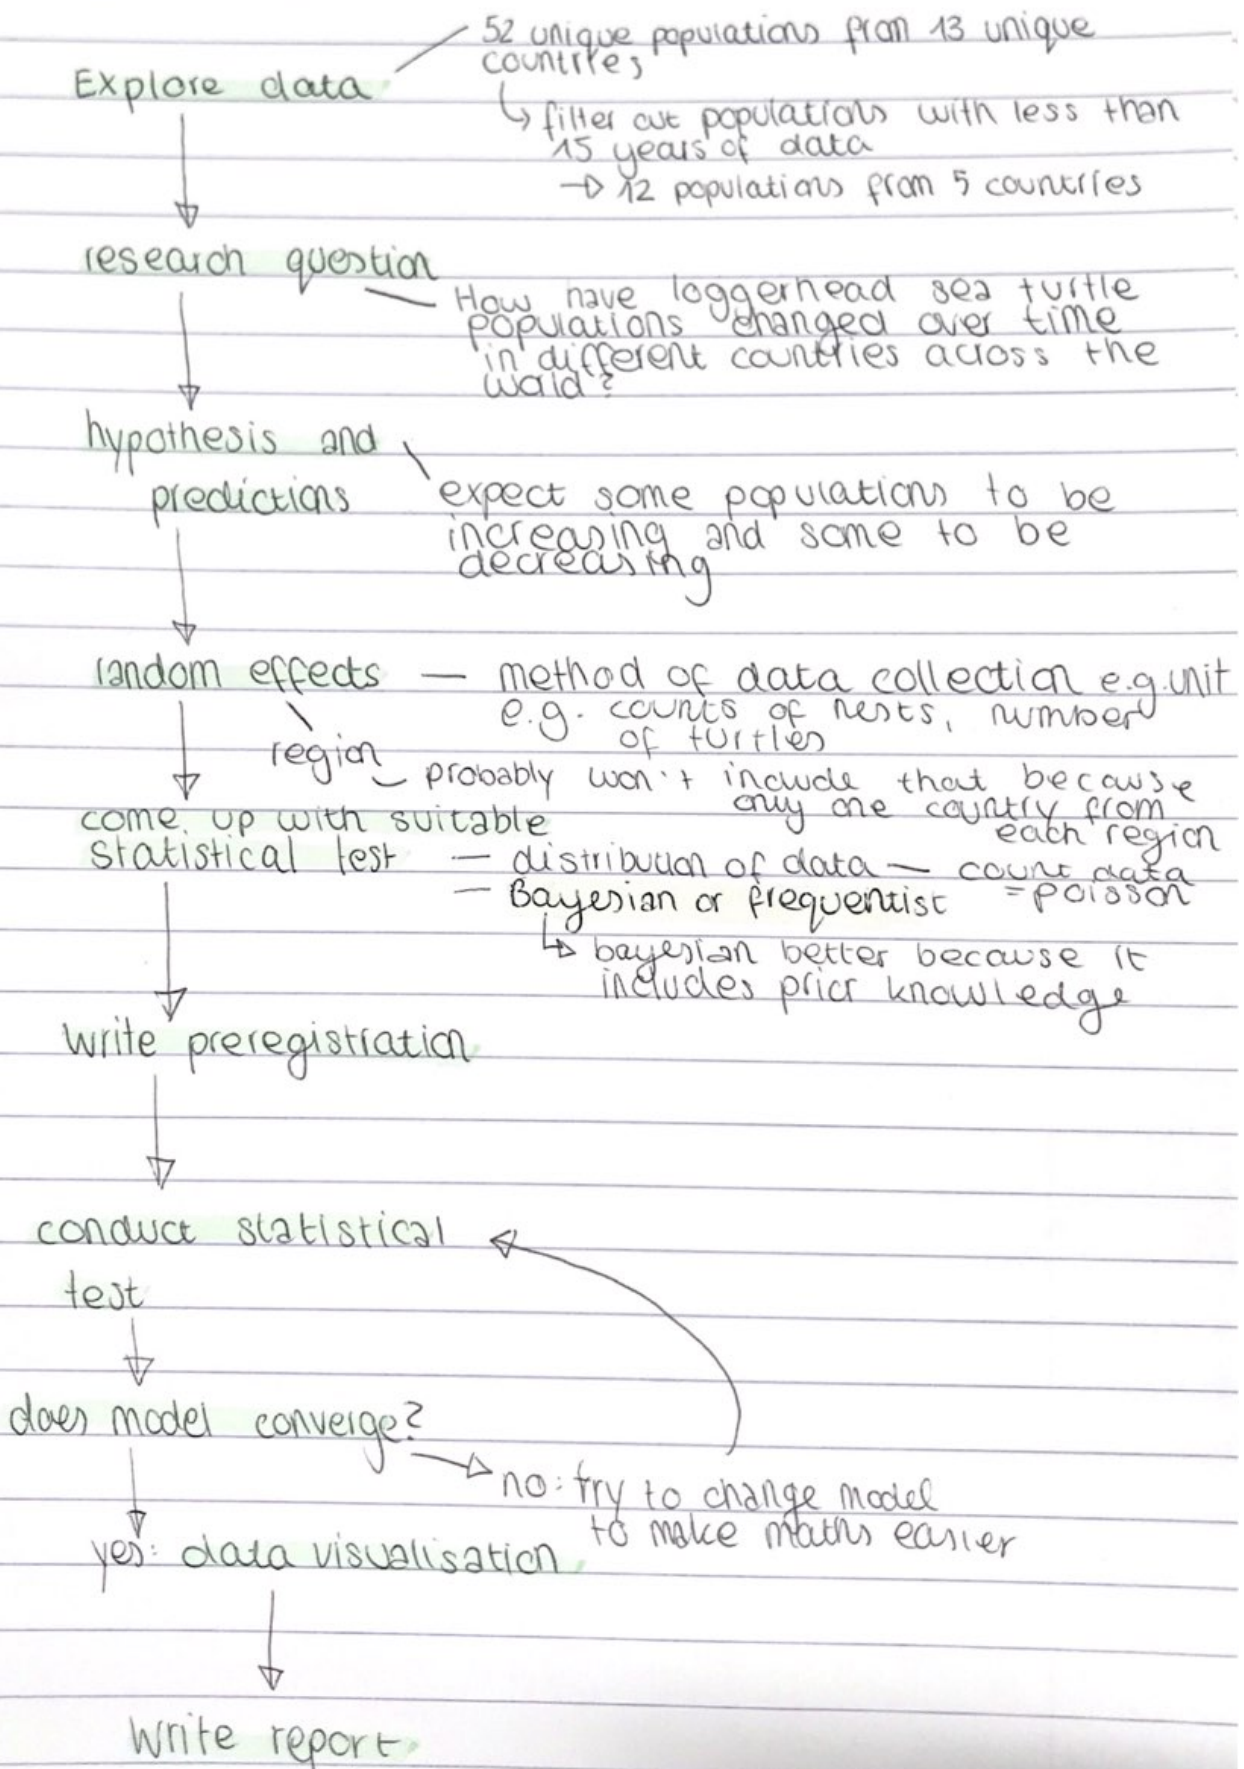 52 unique populations from 13 unique
countries
Explore data
↳ filter out populations with less than
15 years of data
→ 12 populations from 5 countries
research question
How have loggerhead sea turtle
populations changed over time
in different countries across the
world?
hypothesis and
predictions
expect some populations to be
increasing and some to be
decreasing
random effects — method of data collection e.g. unit
e.g. counts of nests, number
of turtles
region
probably won't include that because
only one country from
each region
come up with suitable
statistical test
— distribution of data — count data
= poisson
— Bayesian or frequentist
↳ bayesian better because it
includes prior knowledge
Write preregistration
conduct statistical
test
does model converge?
no: try to change model
to make maths easier
yes: data visualisation
Write report